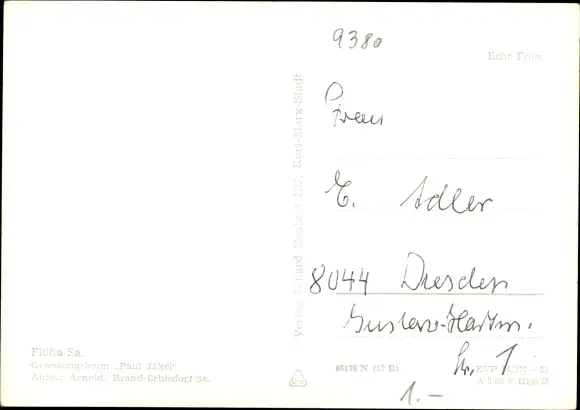 9380
Echt Foto
Frau
E. Adler
8044 Dresden
Gustav-Hartm.
Str. 1
1.-
Verlag Erhard Neubert KG, Karl-Marx-Stadt
Flöha/Sa.
Genesungsheim „Paul Jäkel"
Aufn.: Arnold, Brand-Erbisdorf/Sa.
EVP